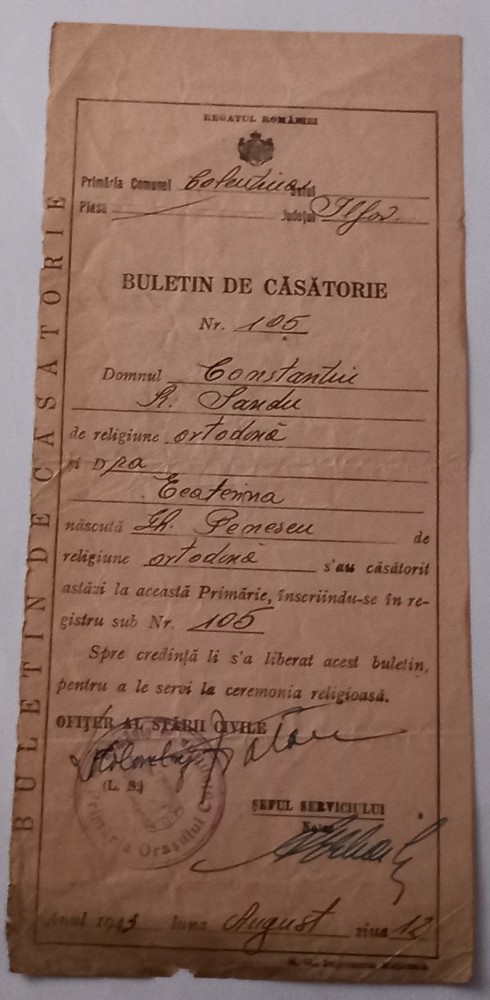 REGATUL ROMÂNIEI
Primăria Comunei Colentina Satul
Plasa Județul Ilfov
BULETIN DE CĂSĂTORIE
BULETIN DE CĂSĂTORIE
Nr. 105
Domnul Constantin
R. Sandu
de religiune ortodoxă
și D pa
Ecaterina
născută Gh. Penescu de
religiune ortodoxă s'au căsătorit
astăzi la această Primărie, înscriindu-se în re-
gistru sub Nr. 105
Spre credință li s'a liberat acest buletin,
pentru a le servi la ceremonia religioasă.
OFIȚER AL STĂRII CIVILE
(L. S.)
Primăria Orașului
ȘEFUL SERVICIULUI
Notar
Anul 1943 luna August ziua 12